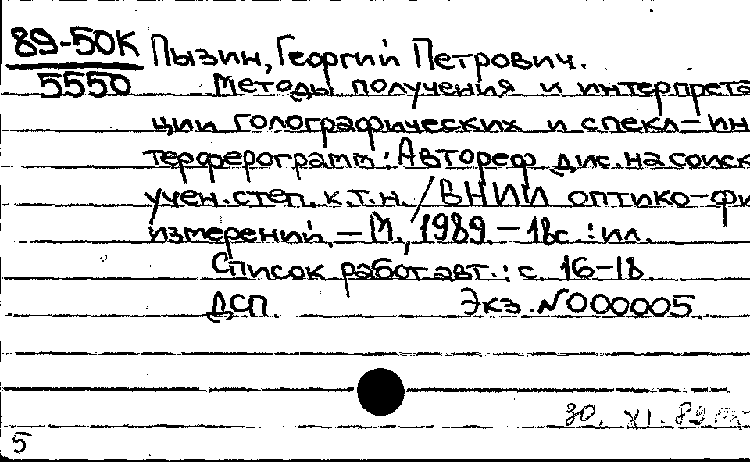 89-50К Пызин, Георгий Петрович.
5550 Методы получения и интерпрета
ции голографических и спекл-ин
терферограмм: Автореф дис. на соиск
учен. степ. к.т.н. / ВНИИ оптико-фи
измерений. - М., 1989. - 18с. : ил.
Список работ авт.: с. 16-18
ДСП. Экз. №000005
30. XI. 89
5